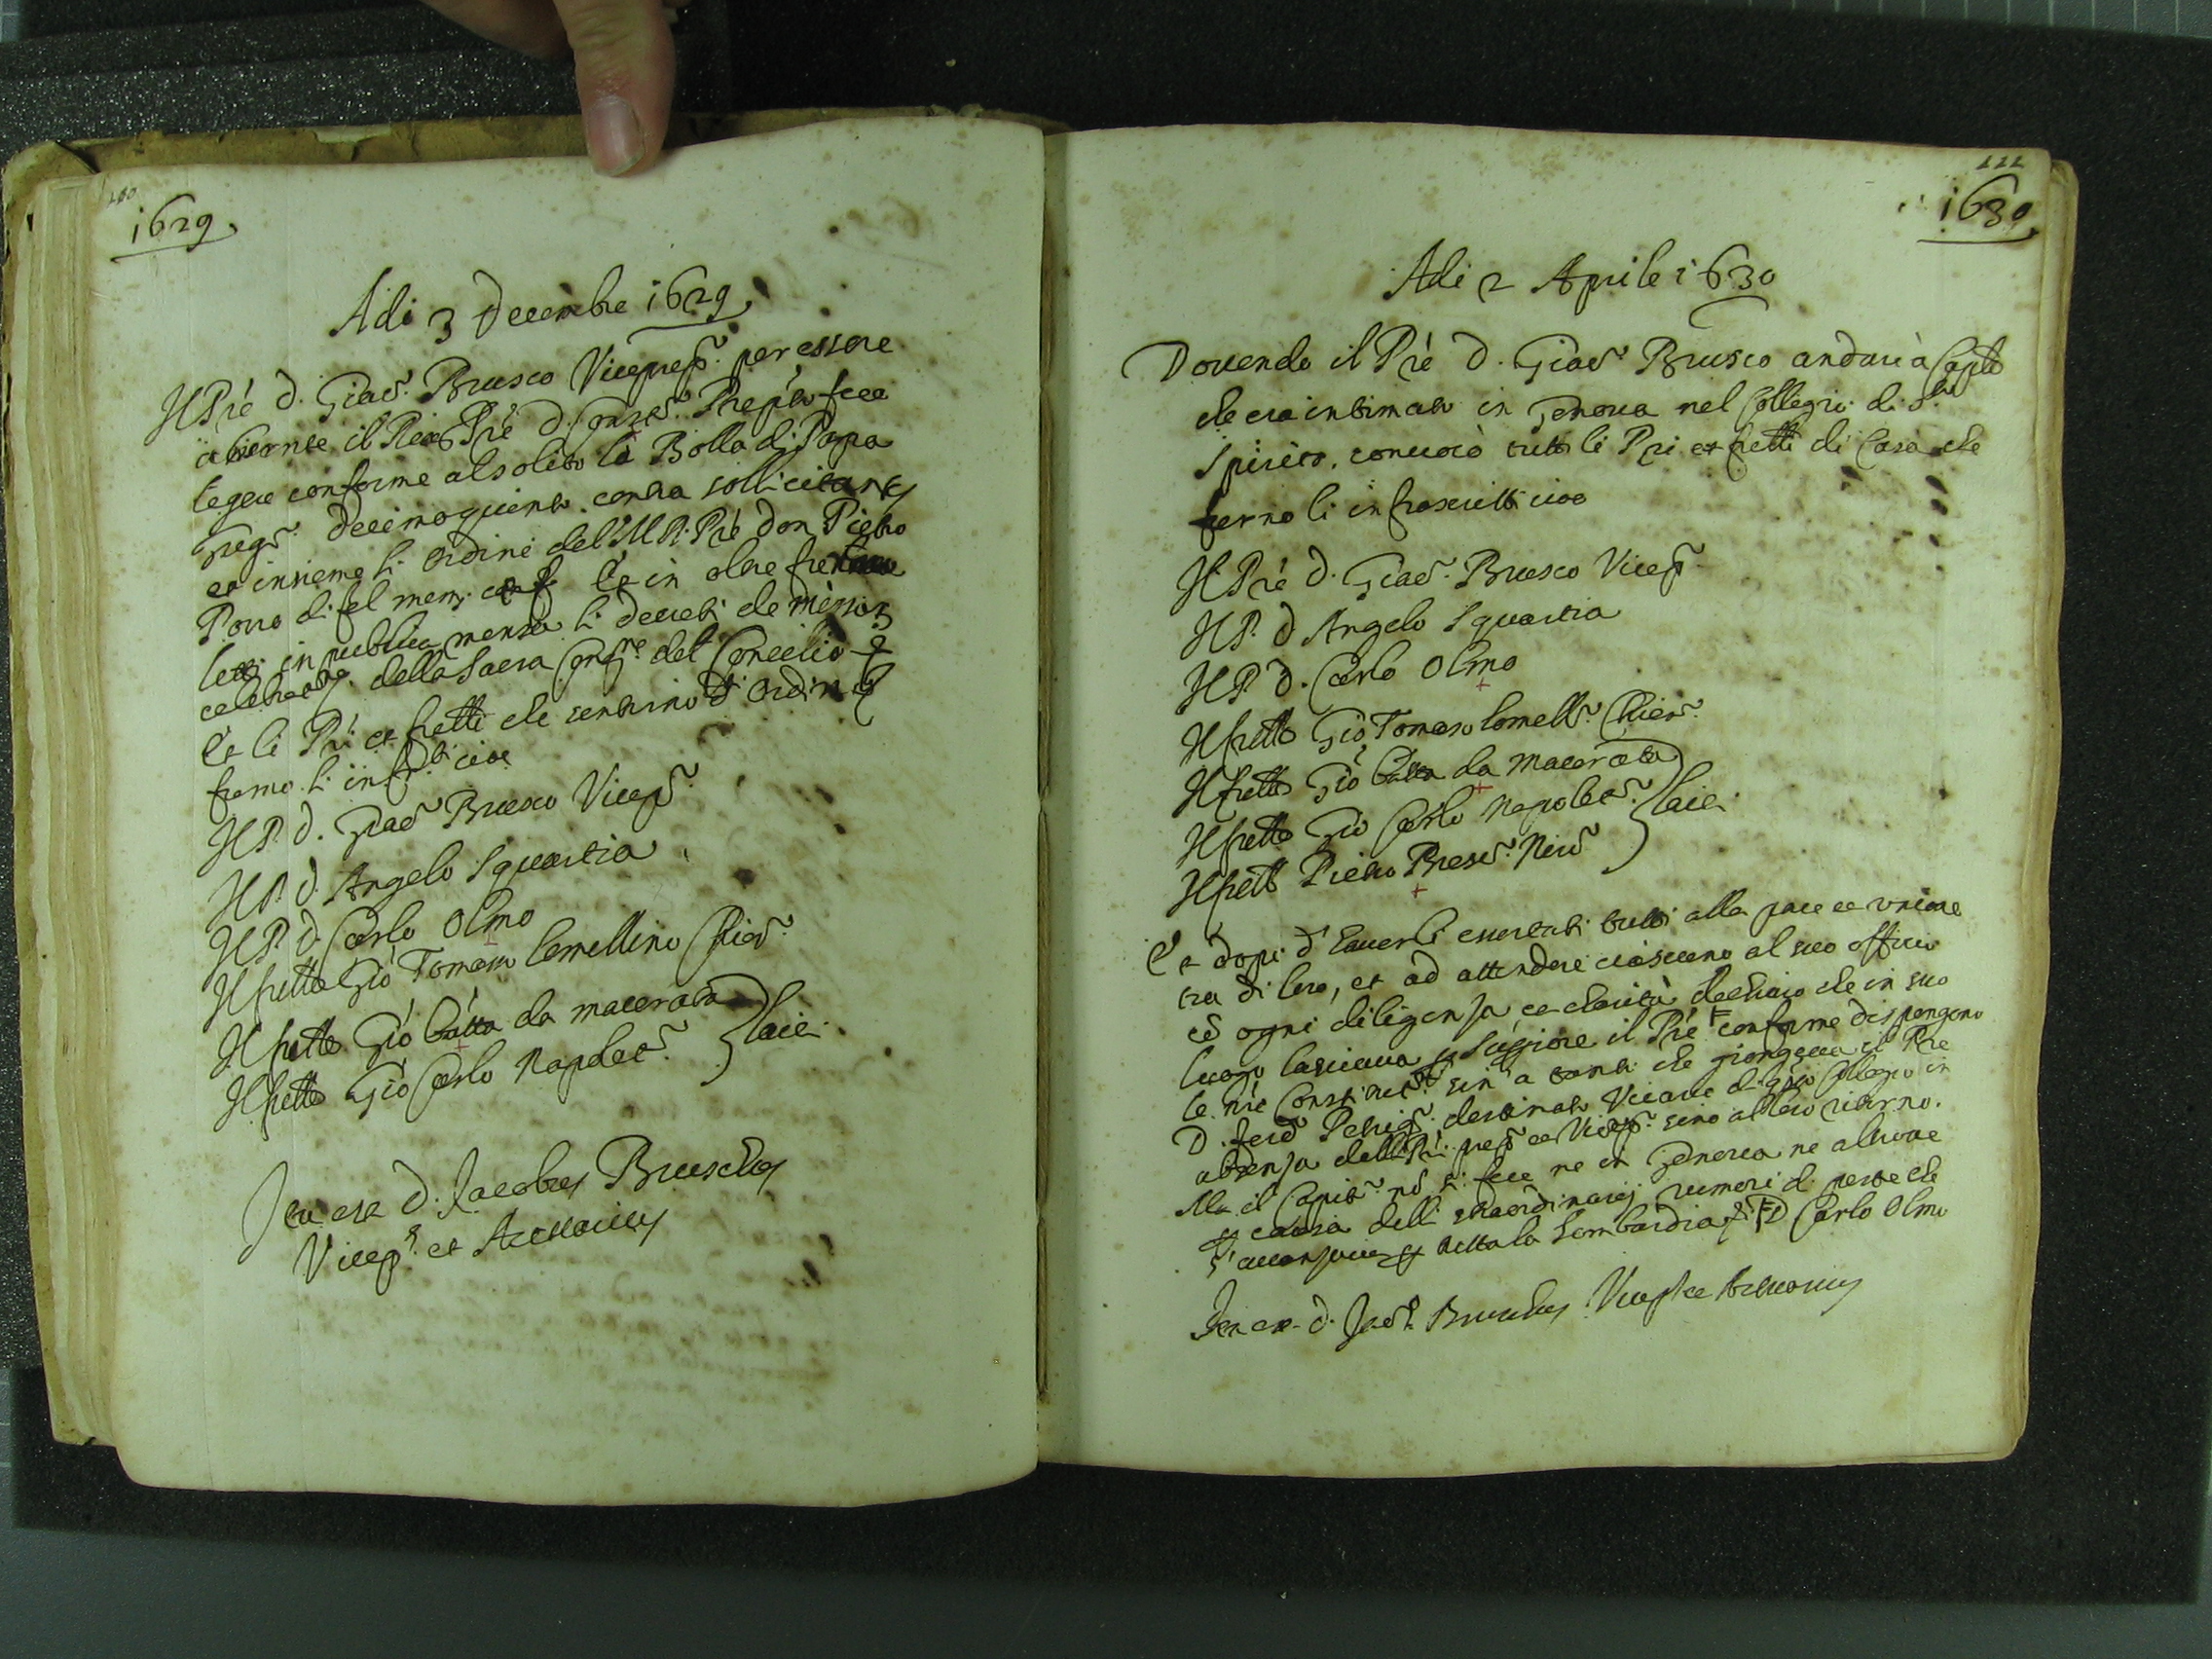 110
1629
Adi 3 Decembre 1629
Il Pre D. Giac.º Brusco Viceprep.º per essere
absente il Prep.to fece
legere conforme al solito la Bolla di Papa
Greg.º Decimoquinto contra sollicitantes
et insieme li ordini del M. R. Pre Don Pietro
Porro di fel. mem. Et in oltre furno
letti in publica mensa li decreti de missis
celebrandis della Sacra Cong.ne del Concilio
Et li Pri et fratti che sentirno d.i ordini
furno li infr.ti cioe
Il P. D. Giac.º Brusco Vicep.º
Il P. D. Angelo Squartia
Il P. D. Carlo Olmo
Il fratto Gio Tomaso Lomellino Chier.º
Il fratto Gio Batta da Macerata
Il fratto Gio Carlo Napolet.º laici
Ita est D. Jacobus Bruschus
Vicep.s et Actuarius
111
1630
Adi 2 Aprile 1630
Dovendo il Pre D. Giac.º Brusco andare à Cap.lo
che era intimato in Genova nel Collegio di S.to
Spirito, convocò tutti li Pri et fratti di Casa che
furno li infrascritti cioe
Il Pre D. Giac.º Brusco Vicep.º
Il P. D Angelo Squartia
Il P. D. Carlo Olmo
Il fratto Gio Tomaso Lomell.º Chier.º
Il fratto Gio Batta da Macerata
Il fratto Gio Carlo Napolet.º laici
Il fratto Pietro Fran.º Nero
Et dopo d'haverli essortati tutti alla pace et unione
tra di loro, et ad attendere ciascuno al suo officio
cõ ogni diligenza et charità dechiarò che in suo
luogo lasciava p Superiore il Pre conforme dispongono
le nre Constitut.ni sin' a tanto che giongeva il Pre
D. Ferd.º destinato Vicario di q.sto Collegio in
absenza delli Pri prep.º et Vicep.º sino al loro ritorno.
Ma il Capit.º nõ si fece ne in Genova ne altrove
p causa delli straordinarij rumori di peste che
s' p tutta la Lombardia D Carlo Olmo
Ita est D. Jac.s Bruschus Vicep.s et Actuarius